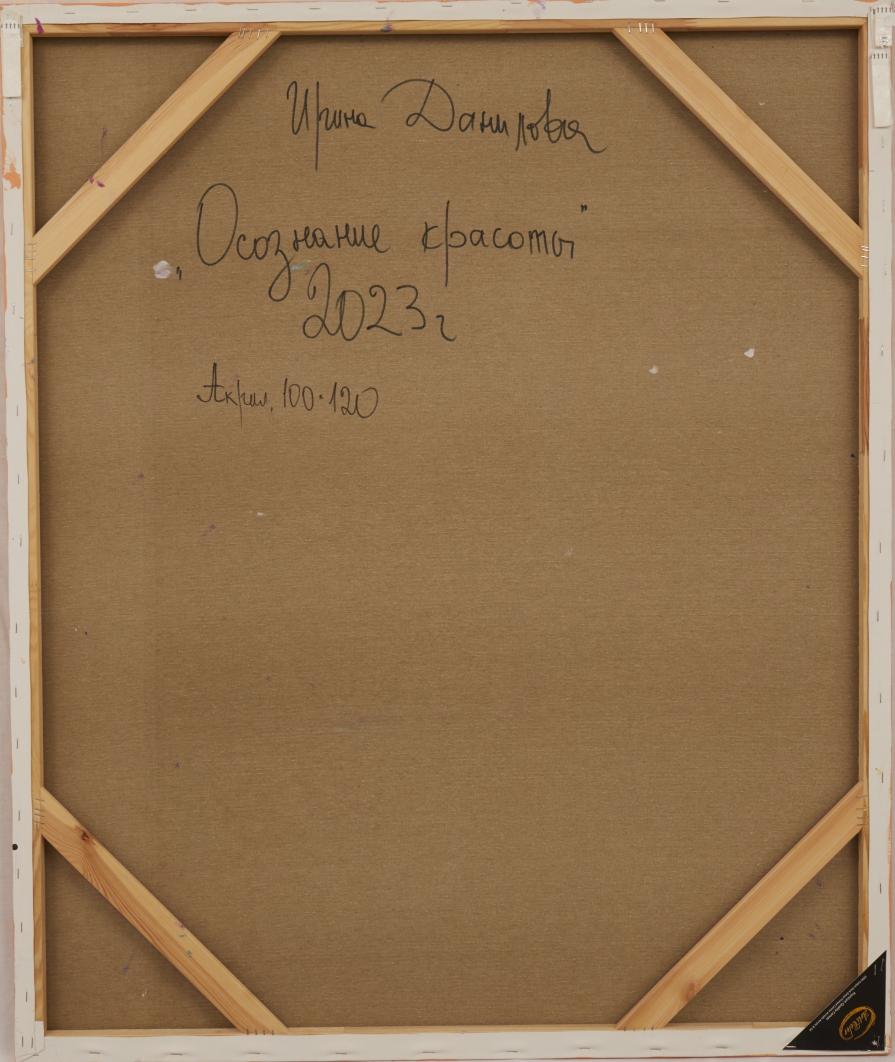 Ирина Данилова
„Осознание красоты"
2023г
Акрил, 100·120